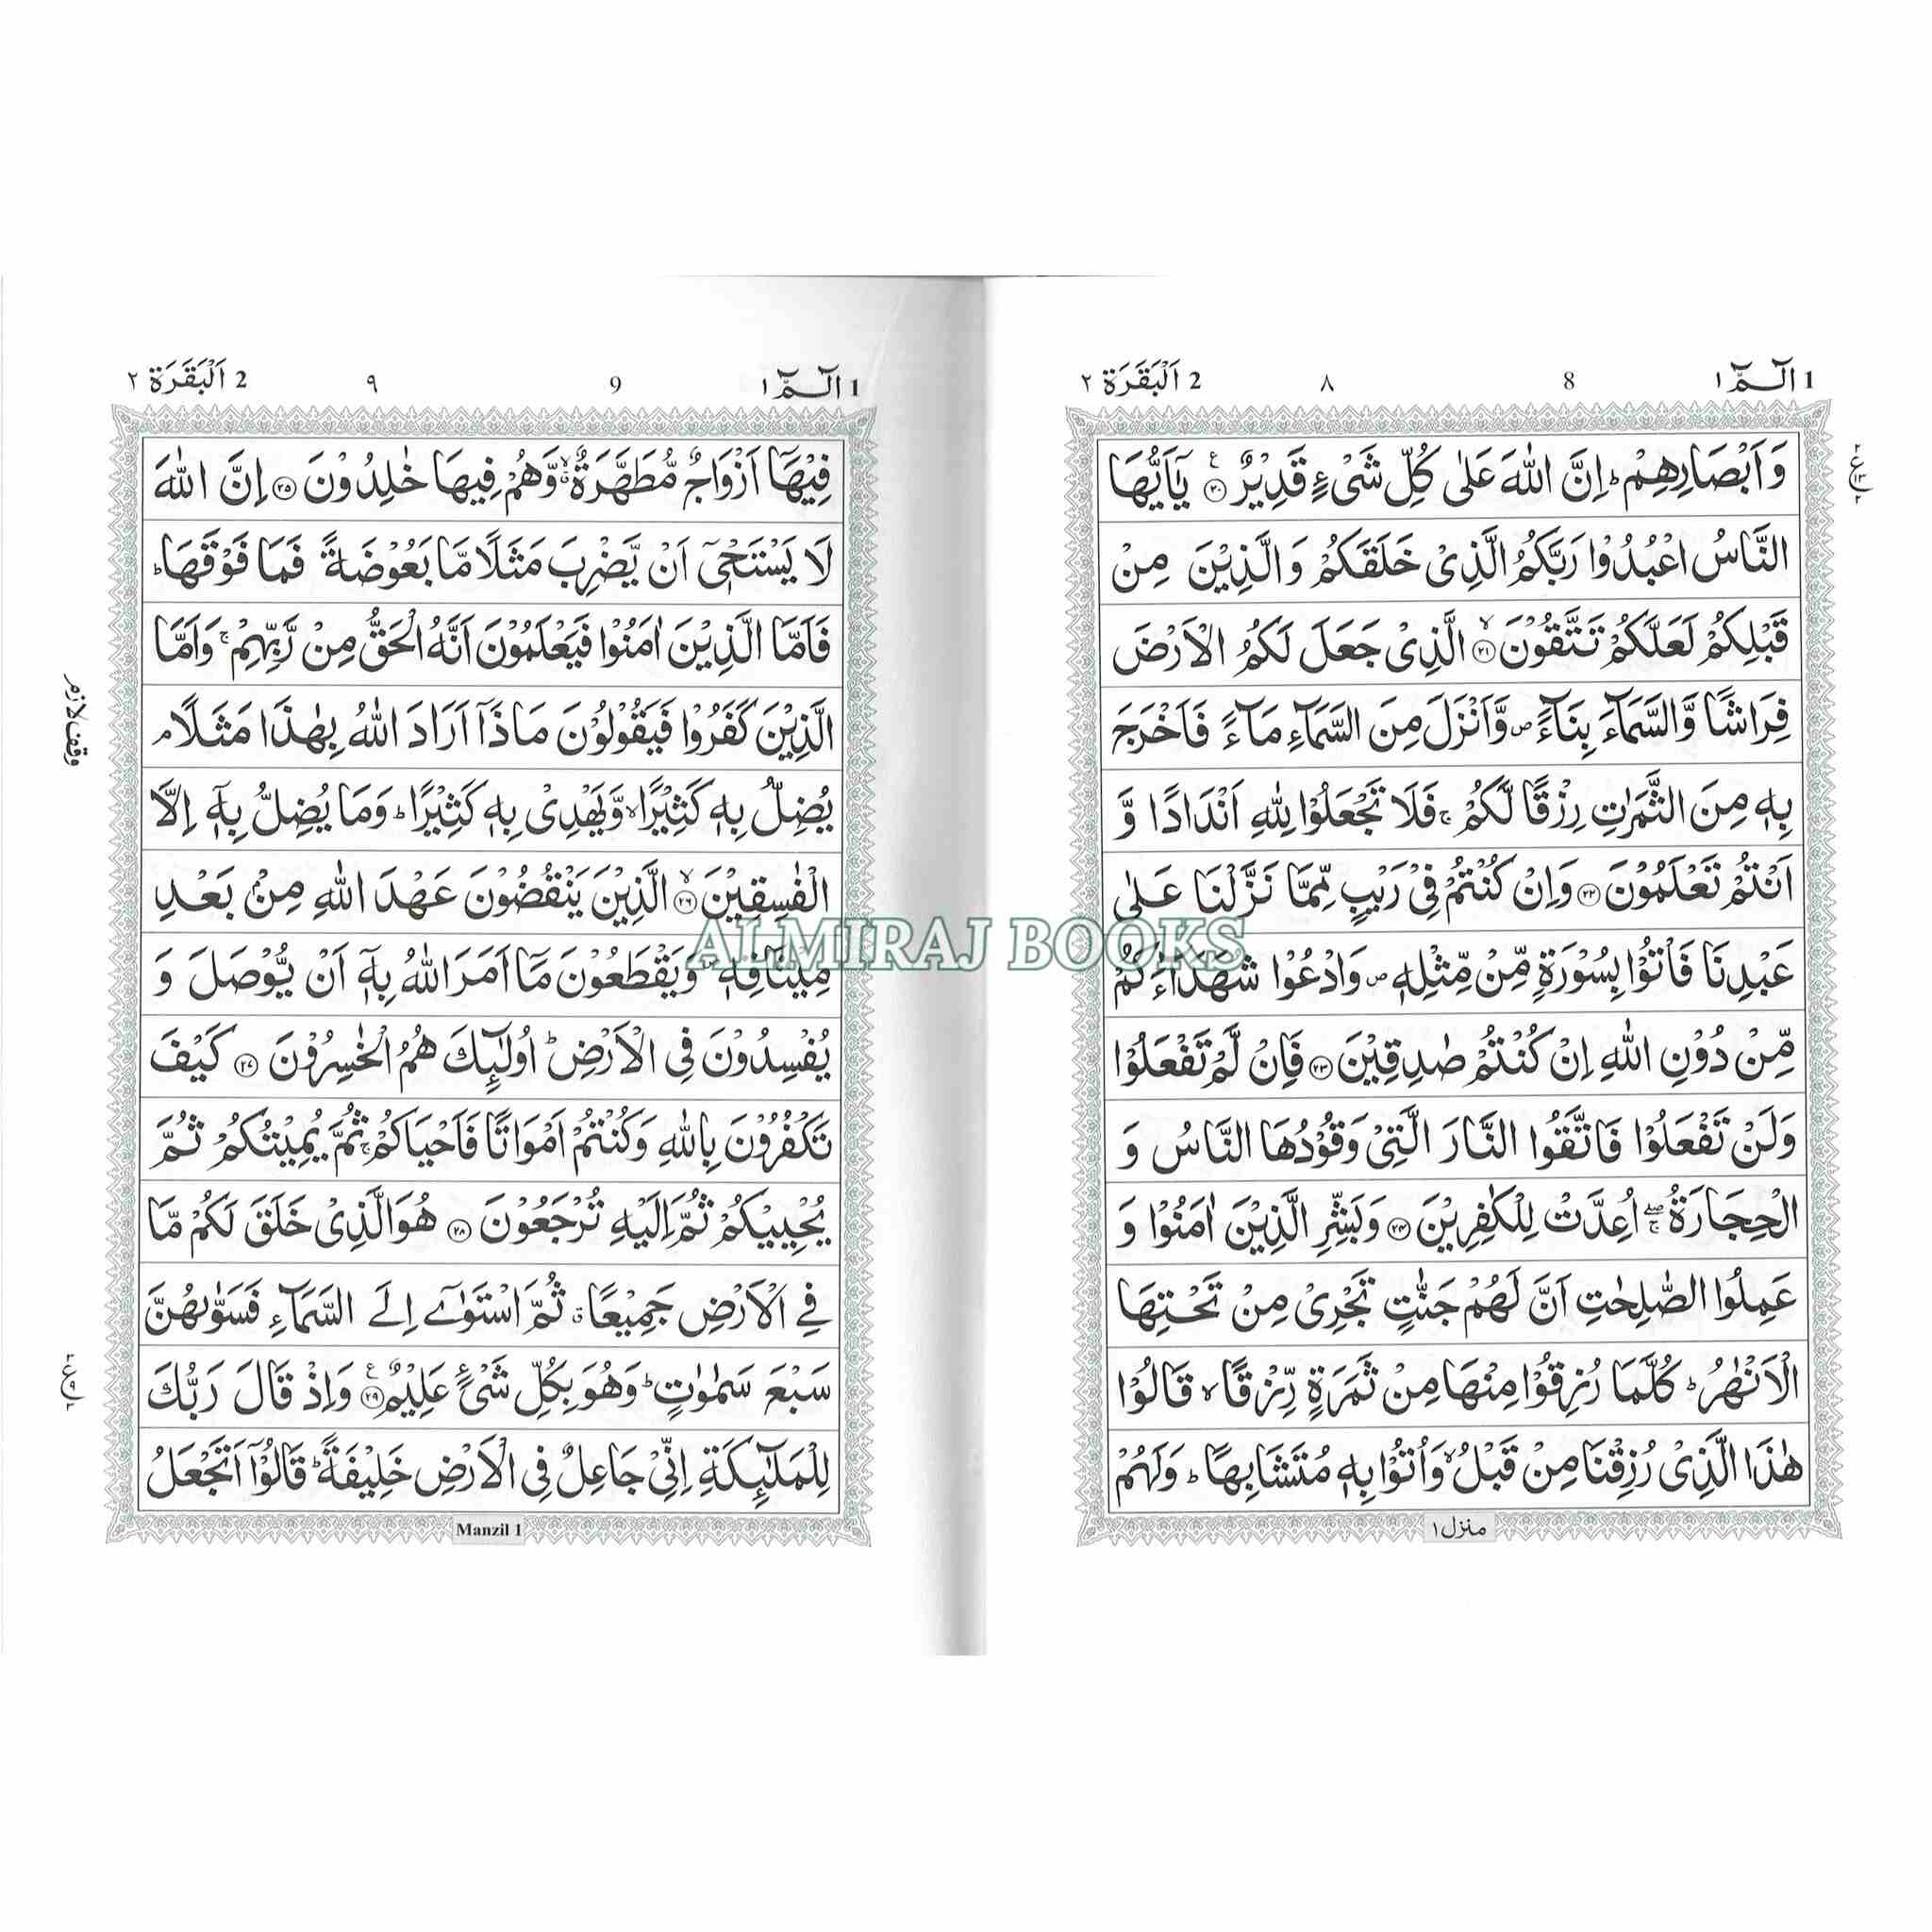 1 الٓـمّٓ ١
8
٨
2 اَلْبَقَرَة ٢
وَاَبْصَارِهِمْ ؕ اِنَّ اللّٰهَ عَلٰى كُلِّ شَیْءٍ قَدِیْرٌ ﴿۲۰﴾ یٰۤاَیُّهَا
النَّاسُ اعْبُدُوْا رَبَّكُمُ الَّذِیْ خَلَقَكُمْ وَالَّذِیْنَ مِنْ
قَبْلِكُمْ لَعَلَّكُمْ تَتَّقُوْنَ ﴿۲۱﴾ الَّذِیْ جَعَلَ لَكُمُ الْاَرْضَ
فِرَاشًا وَّالسَّمَآءَ بِنَآءً ۪ وَّاَنْزَلَ مِنَ السَّمَآءِ مَآءً فَاَخْرَجَ
بِهٖ مِنَ الثَّمَرٰتِ رِزْقًا لَّكُمْ ۚ فَلَا تَجْعَلُوْا لِلّٰهِ اَنْدَادًا وَّ
اَنْتُمْ تَعْلَمُوْنَ ﴿۲۲﴾ وَاِنْ كُنْتُمْ فِیْ رَیْبٍ مِّمَّا نَزَّلْنَا عَلٰى
عَبْدِنَا فَاْتُوْا بِسُوْرَةٍ مِّنْ مِّثْلِهٖ ۪ وَادْعُوْا شُهَدَآءَكُمْ
مِّنْ دُوْنِ اللّٰهِ اِنْ كُنْتُمْ صٰدِقِیْنَ ﴿۲۳﴾ فَاِنْ لَّمْ تَفْعَلُوْا
وَلَنْ تَفْعَلُوْا فَاتَّقُوا النَّارَ الَّتِیْ وَقُوْدُهَا النَّاسُ وَ
الْحِجَارَةُ ۖۚ اُعِدَّتْ لِلْكٰفِرِیْنَ ﴿۲۴﴾ وَبَشِّرِ الَّذِیْنَ اٰمَنُوْا وَ
عَمِلُوا الصّٰلِحٰتِ اَنَّ لَهُمْ جَنّٰتٍ تَجْرِیْ مِنْ تَحْتِهَا
الْاَنْهٰرُ ؕ كُلَّمَا رُزِقُوْا مِنْهَا مِنْ ثَمَرَةٍ رِّزْقًا ۙ قَالُوْا
هٰذَا الَّذِیْ رُزِقْنَا مِنْ قَبْلُ ۙ وَاُتُوْا بِهٖ مُتَشَابِهًا ؕ وَلَهُمْ
منزل ١
1 الٓـمّٓ ١
9
٩
2 اَلْبَقَرَة ٢
فِیْهَاۤ اَزْوَاجٌ مُّطَهَّرَةٌ ۙۗ وَّهُمْ فِیْهَا خٰلِدُوْنَ ﴿۲۵﴾ اِنَّ اللّٰهَ
لَا یَسْتَحْیٖۤ اَنْ یَّضْرِبَ مَثَلًا مَّا بَعُوْضَةً فَمَا فَوْقَهَا ؕ
فَاَمَّا الَّذِیْنَ اٰمَنُوْا فَیَعْلَمُوْنَ اَنَّهُ الْحَقُّ مِنْ رَّبِّهِمْ ۚ وَاَمَّا
الَّذِیْنَ كَفَرُوْا فَیَقُوْلُوْنَ مَاذَاۤ اَرَادَ اللّٰهُ بِهٰذَا مَثَلًا ۘ
یُضِلُّ بِهٖ كَثِیْرًا ۙ وَّیَهْدِیْ بِهٖ كَثِیْرًا ؕ وَمَا یُضِلُّ بِهٖۤ اِلَّا
الْفٰسِقِیْنَ ﴿۲۶﴾ الَّذِیْنَ یَنْقُضُوْنَ عَهْدَ اللّٰهِ مِنْۢ بَعْدِ
مِیْثَاقِهٖ ۪ وَیَقْطَعُوْنَ مَاۤ اَمَرَ اللّٰهُ بِهٖۤ اَنْ یُّوْصَلَ وَ
یُفْسِدُوْنَ فِی الْاَرْضِ ؕ اُولٰٓىِٕكَ هُمُ الْخٰسِرُوْنَ ﴿۲۷﴾ كَیْفَ
تَكْفُرُوْنَ بِاللّٰهِ وَكُنْتُمْ اَمْوَاتًا فَاَحْیَاكُمْ ۚ ثُمَّ یُمِیْتُكُمْ ثُمَّ
یُحْیِیْكُمْ ثُمَّ اِلَیْهِ تُرْجَعُوْنَ ﴿۲۸﴾ هُوَالَّذِیْ خَلَقَ لَكُمْ مَّا
فِی الْاَرْضِ جَمِیْعًا ۗ ثُمَّ اسْتَوٰۤى اِلَى السَّمَآءِ فَسَوّٰىهُنَّ
سَبْعَ سَمٰوٰتٍ ؕ وَهُوَ بِكُلِّ شَیْءٍ عَلِیْمٌ ﴿۲۹﴾ وَاِذْ قَالَ رَبُّكَ
لِلْمَلٰٓىِٕكَةِ اِنِّیْ جَاعِلٌ فِی الْاَرْضِ خَلِیْفَةً ؕ قَالُوْۤا اَتَجْعَلُ
Manzil 1
وقف لازم
ALMIRAJ BOOKS